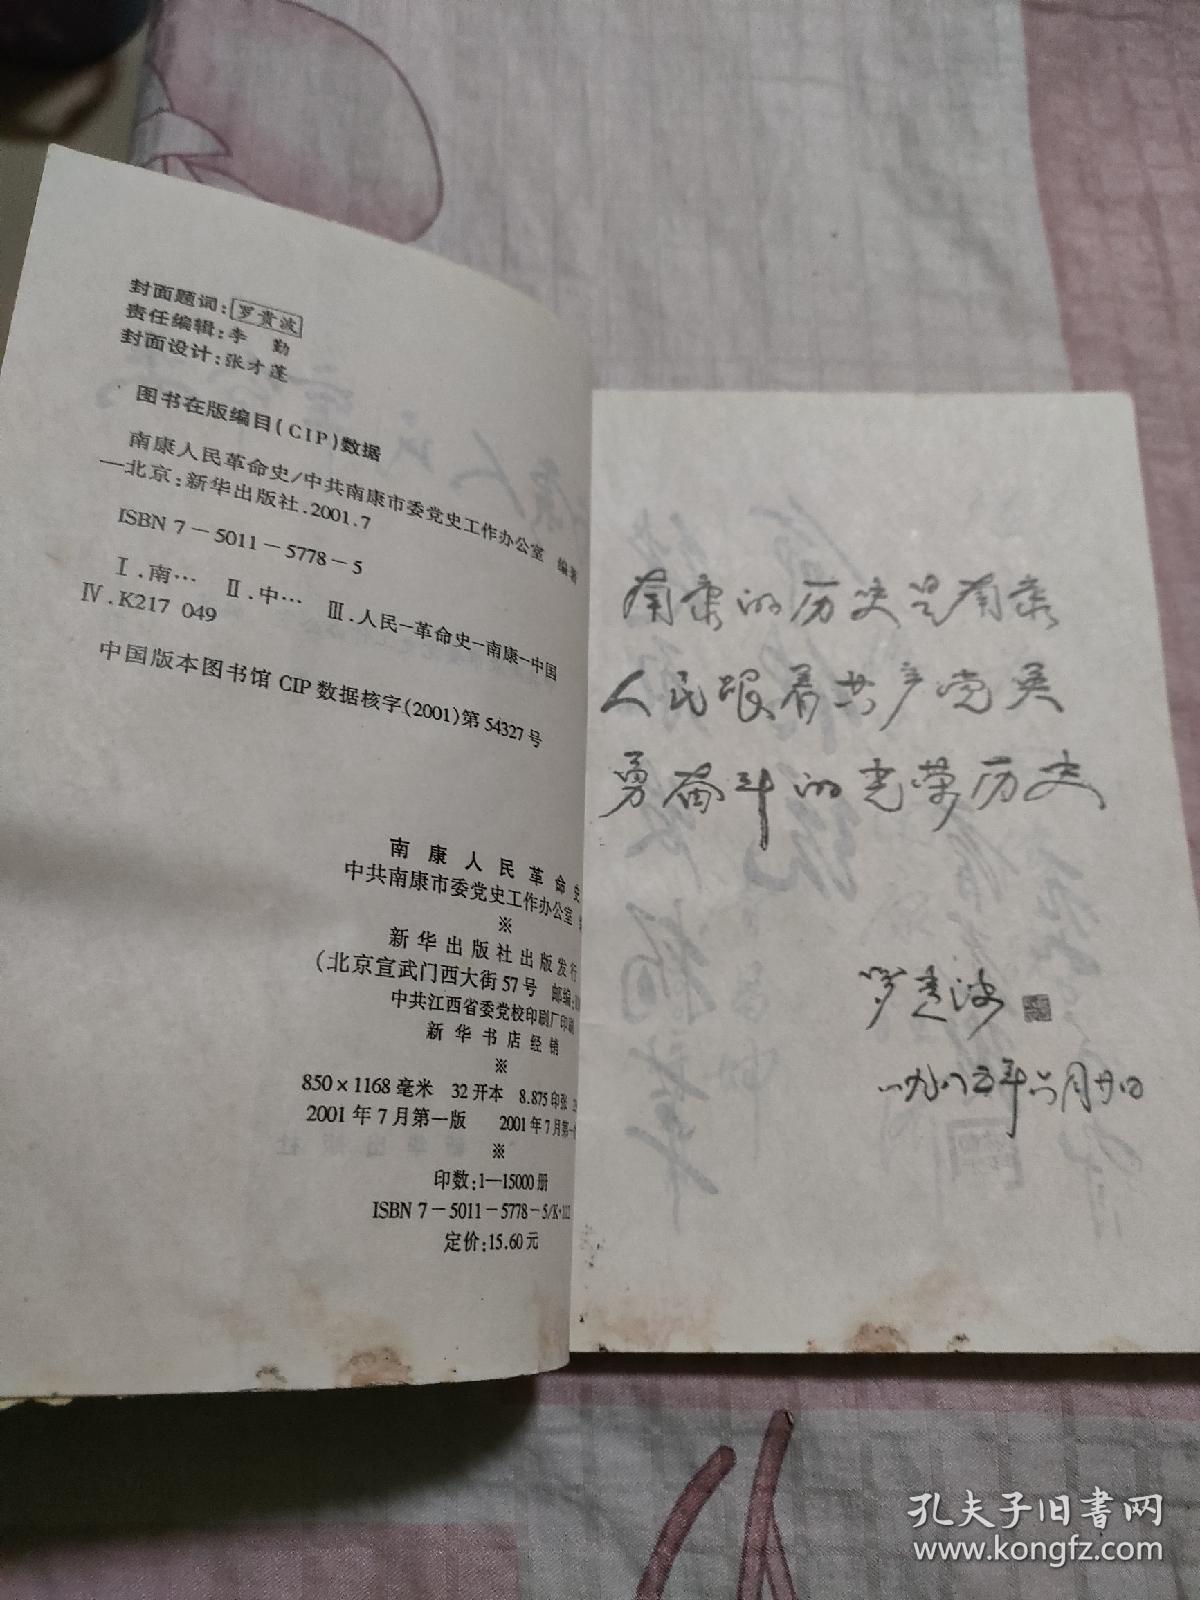 封面题词：罗贵波
责任编辑：李　勤
封面设计：张才莲
图书在版编目(CIP)数据
南康人民革命史/中共南康市委党史工作办公室　编著
—北京：新华出版社.2001.7
ISBN 7－5011－5778－5
Ⅰ.南…　Ⅱ.中…　Ⅲ.人民－革命史－南康－中国
Ⅳ.K217 049
中国版本图书馆 CIP 数据核字(2001)第 54327 号
南康人民革命史
中共南康市委党史工作办公室
※
新华出版社出版发行
(北京宣武门西大街57号　邮编:
中共江西省委党校印刷厂印刷
新华书店经销
※
850×1168毫米　32开本　8.875印张
2001年7月第一版　2001年7月第一
※
印数:1—15000册
ISBN 7－5011－5778－5/K·
定价:15.60元
南康的历史是南康
人民跟着共产党英
勇奋斗的光荣历史
罗贵波
一九八五年六月廿日
孔夫子旧书网
www.kongfz.com